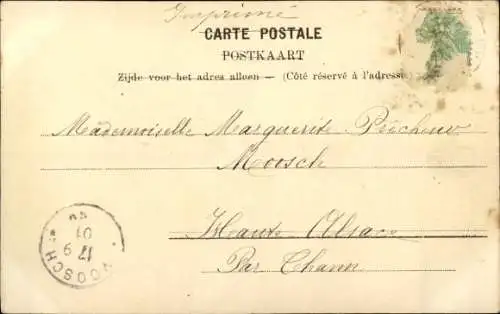 Imprimé
CARTE POSTALE
POSTKAART
Zijde voor het adres alleen — (Côté réservé à l'adresse)
Mademoiselle Marguerite
Moosch
Haute Alsace
Par Thann
MOOSCH
17 9
01